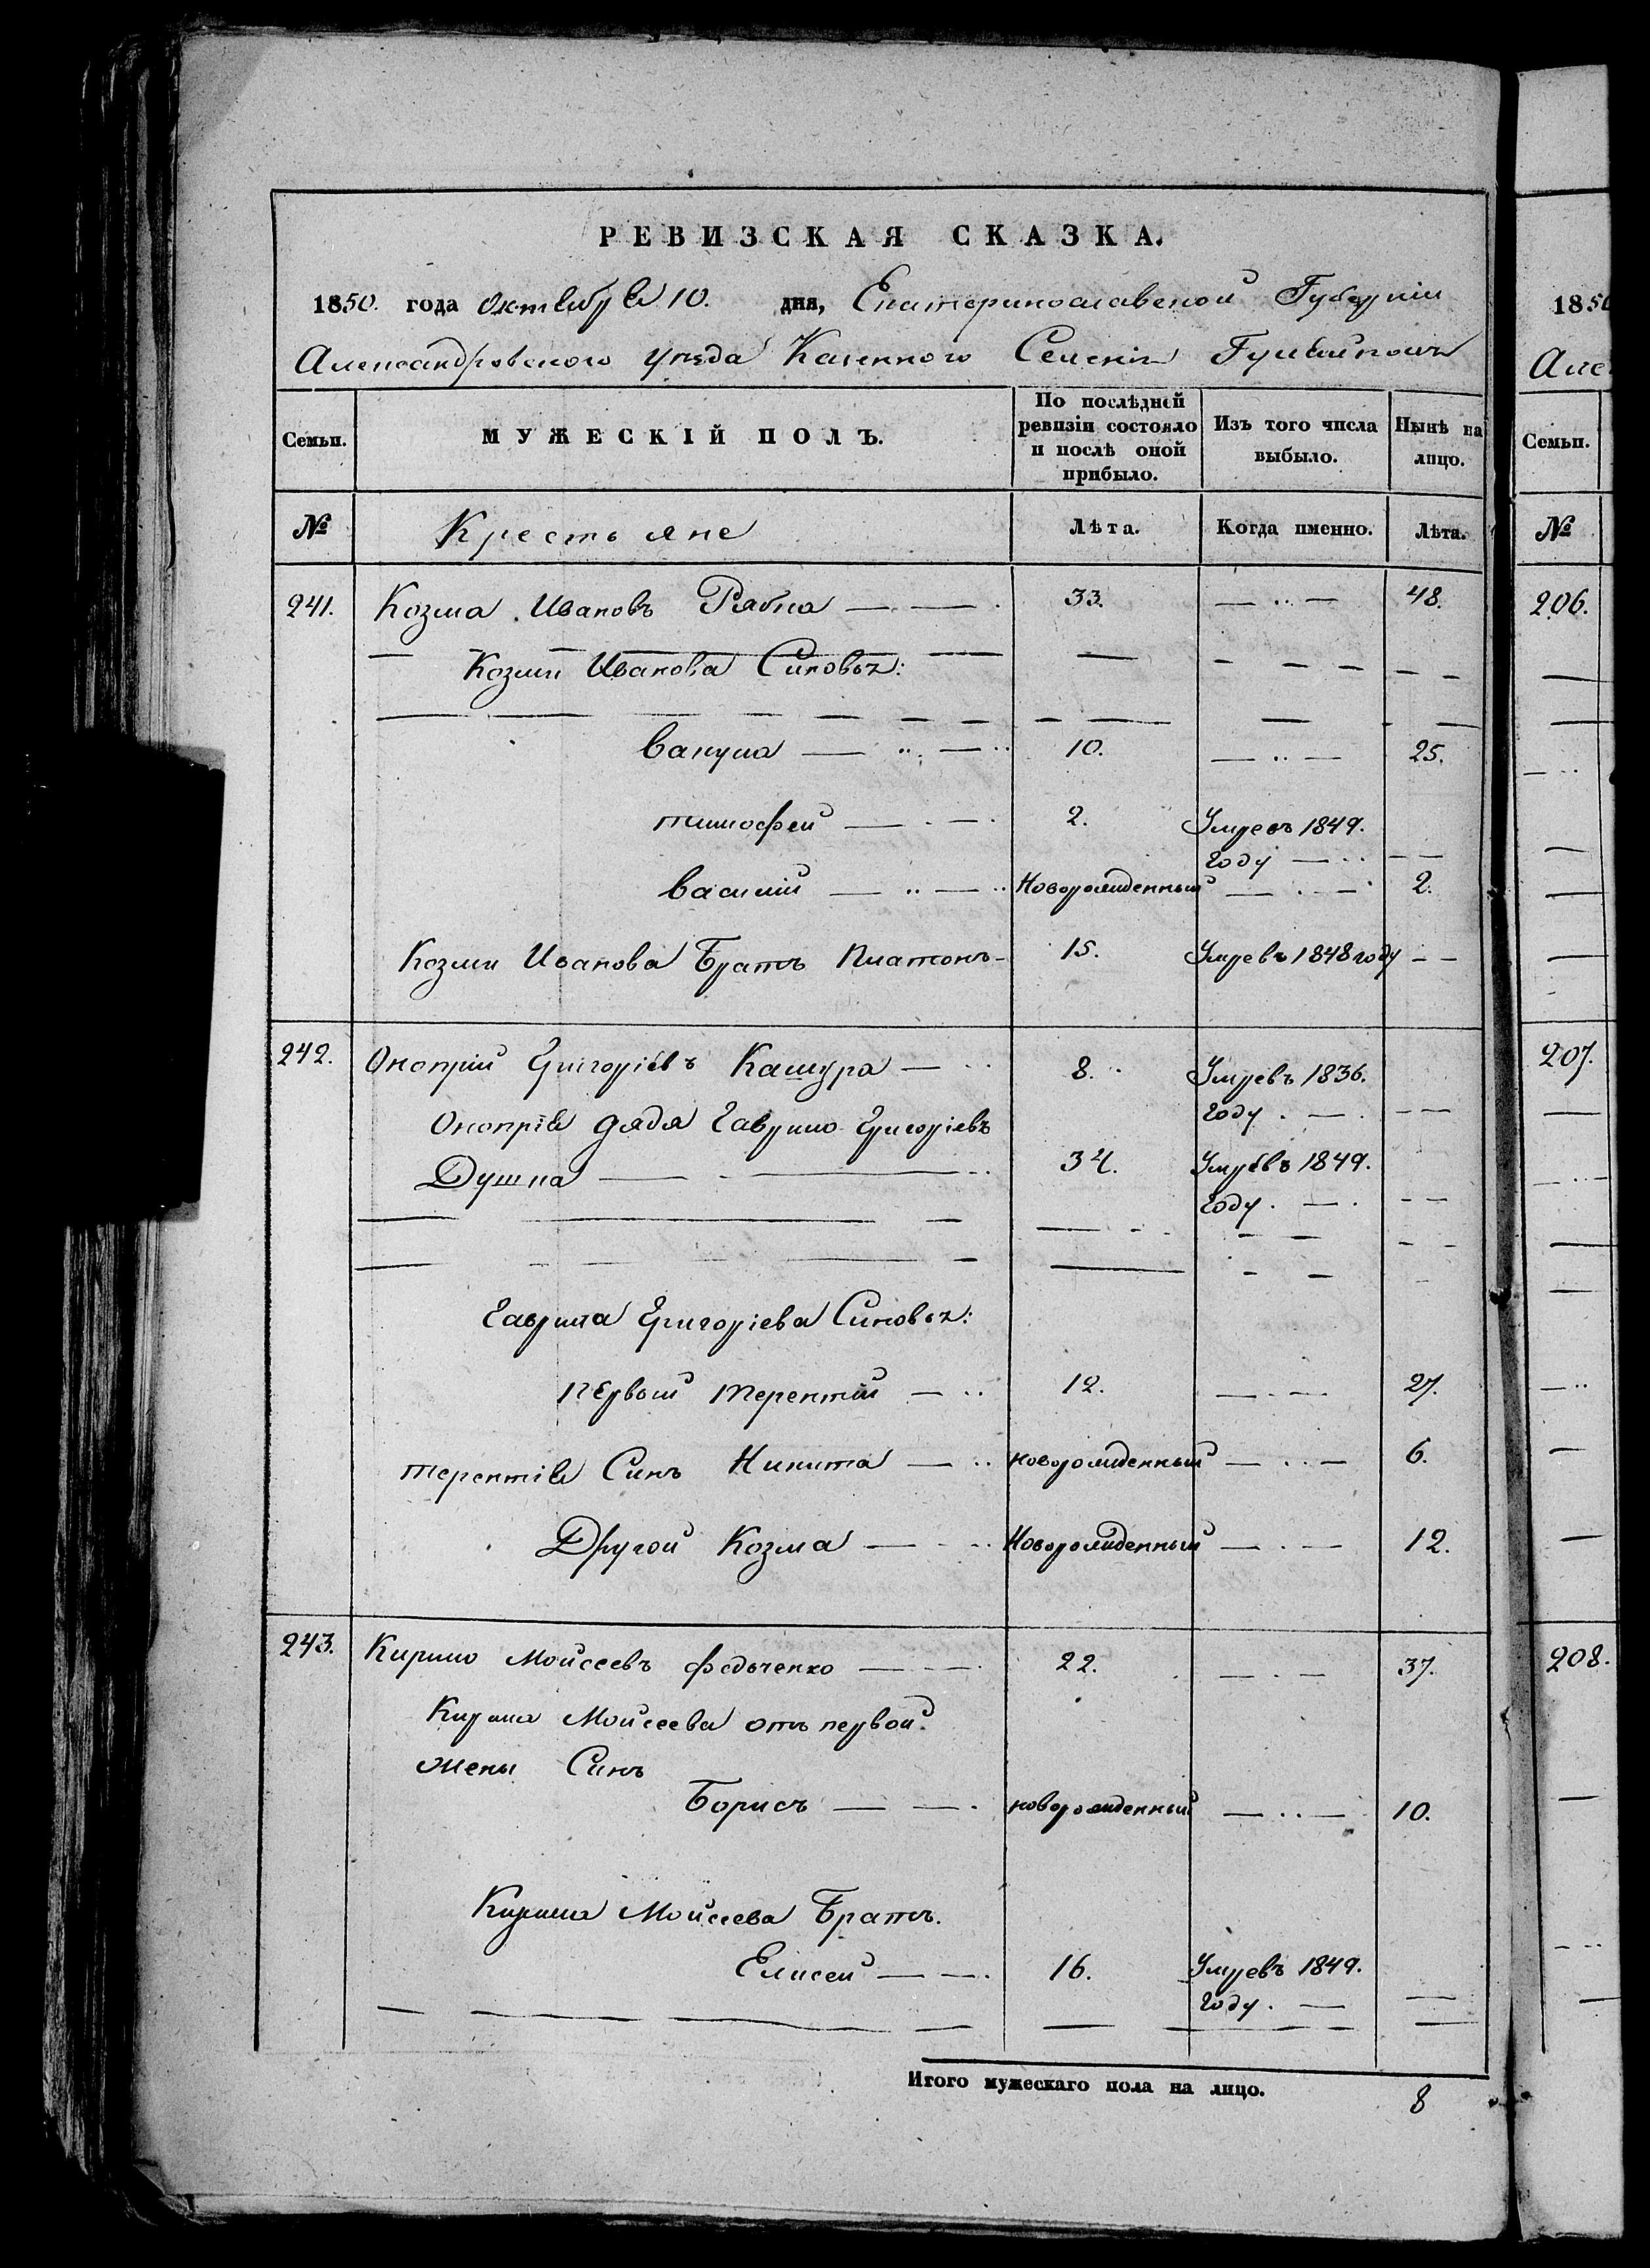 РЕВИЗСКАЯ СКАЗКА.
1850. года Октября 10. дня, Екатеринославской Губерніи
Александровского уезда Казенного Селенія
Семьи. МУЖЕСКІЙ ПОЛЪ. По послѣдней ревизіи состояло и послѣ оной прибыло. Изъ того числа выбыло. Нынѣ на лицо.
№ Крестьяне Лѣта. Когда именно. Лѣта.
241. Козма Ивановъ Рябка 33. 48.
Козми Иванова Синовья:
Вакула 10. 25.
тимофей 2. Умревъ 1849.
году
Василий Новорожденный 2.
Козми Иванова Братъ Платонъ 15. Умревъ 1848 году
242. Оноприй Григоріевъ Кашура 8. Умревъ 1836.
году
Оноприя дядя Гаврило Григоріевъ
Душка 34. Умревъ 1849.
году
Гаврила Григоріева Синовья:
первый терентий 12. 27.
терентия Синъ Никита новорожденный 6.
Другой Козма Новорожденный 12.
243. Кирило Моисеевъ федченко 22. 37.
Кирила Моисеева отъ первой
жены Синъ
Борисъ новорожденный 10.
Кирила Моисеева Братъ.
Елисей 16. Умревъ 1849.
году.
Итого мужескаго пола на лицо. 8
185
Алек
Семьи.
№
206.
207.
208.